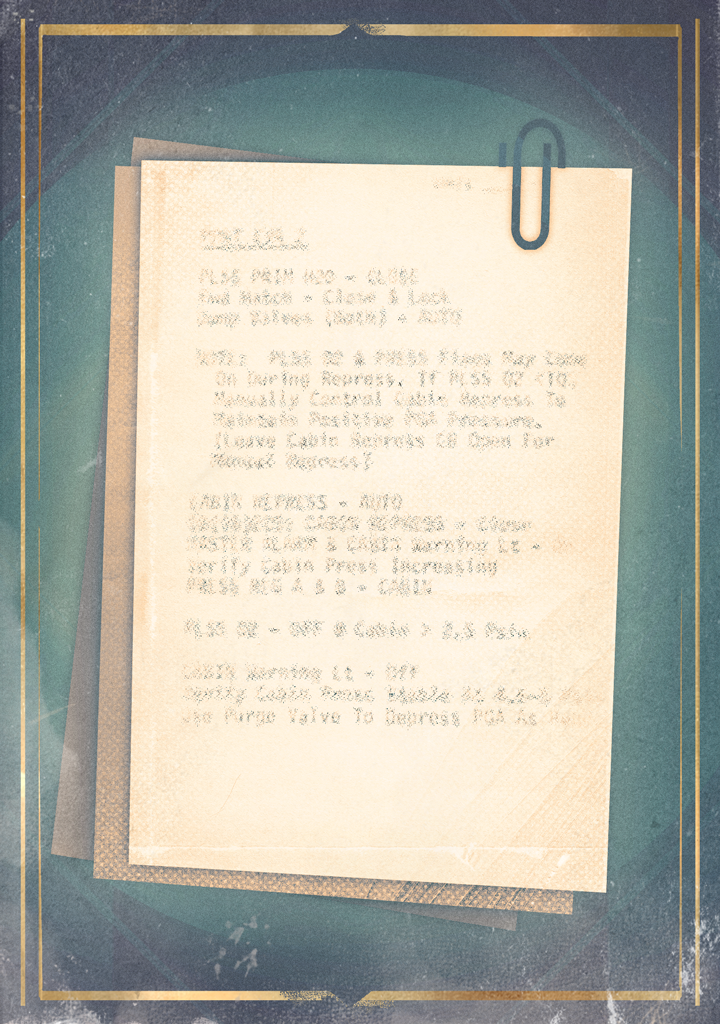 PLSS PRIM H2O - CLOSE
Fwd Hatch - Close & Lock
Dump Valves (Both) - AUTO
NOTE: PLSS O2 & PRESS Flags May Come
On During Repress. If PLSS O2 <10%,
Manually Control Cabin Repress To
Maintain Positive PGA Pressure.
(Leave Cabin Repress CB Open For
Manual Repress)
CABIN REPRESS - AUTO
CABIN REPRESS - Close
MASTER ALARM & CABIN Warning Lt -
Verify Cabin Press Increasing
PRESS REG A & B - CABIN
PLSS O2 - OFF @ Cabin > 2.5 Psia
CABIN Warning Lt - Off
Verify Cabin Press Stable At
Use Purge Valve To Depress PGA As